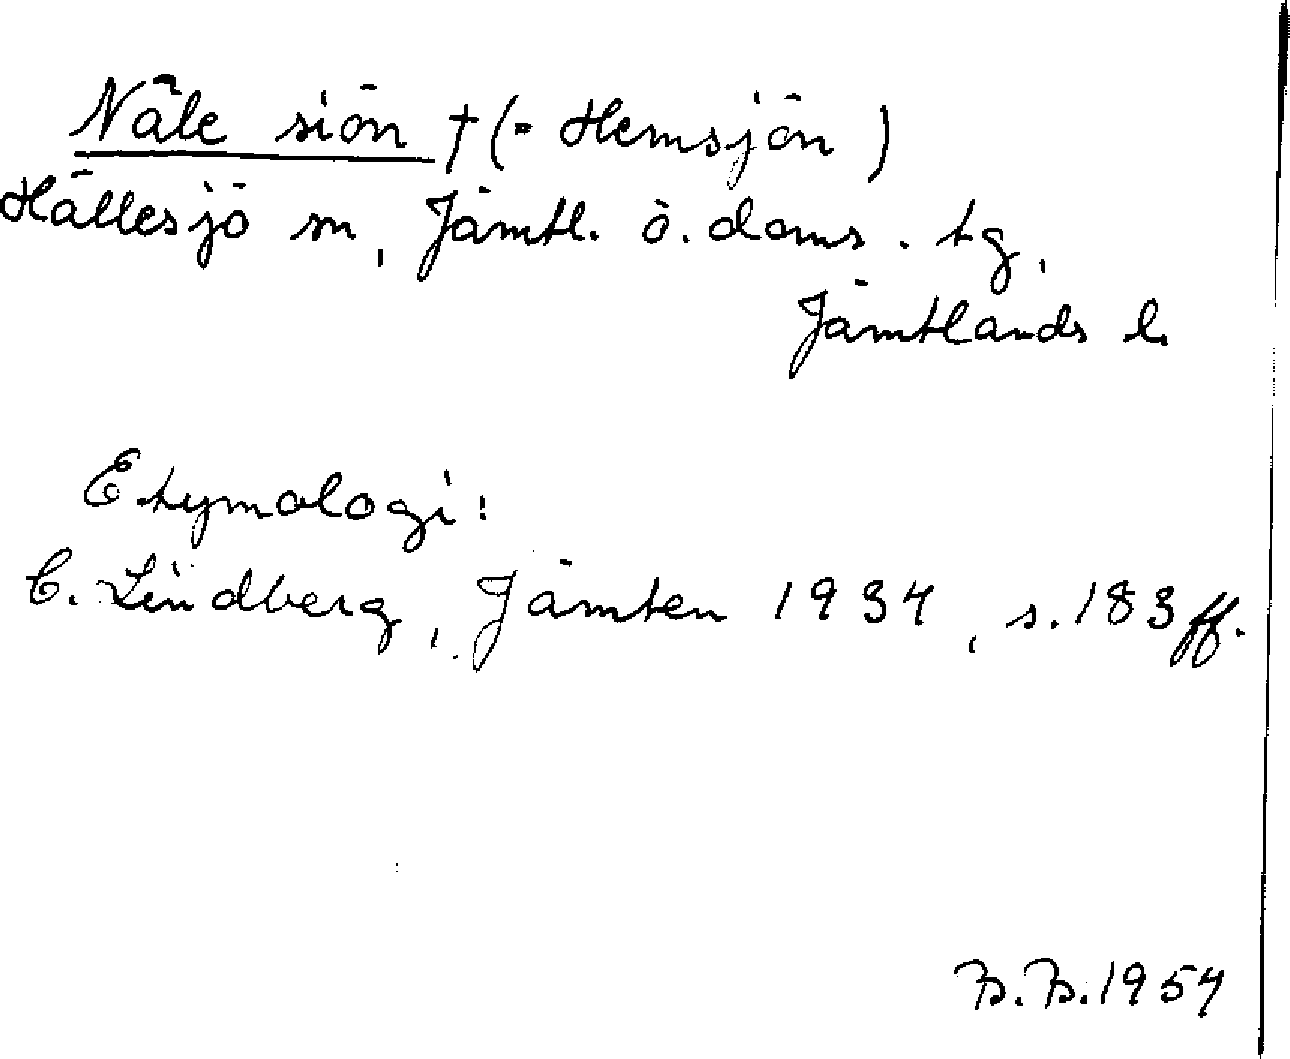 Näle siön † (= Hemsjön)
Hällesjö sn, Jämtl. ö. doms. tg,
Jämtlands l.
Etymologi:
C. Lindberg, Jämten 1934, s. 183 ff.
B. B. 1954